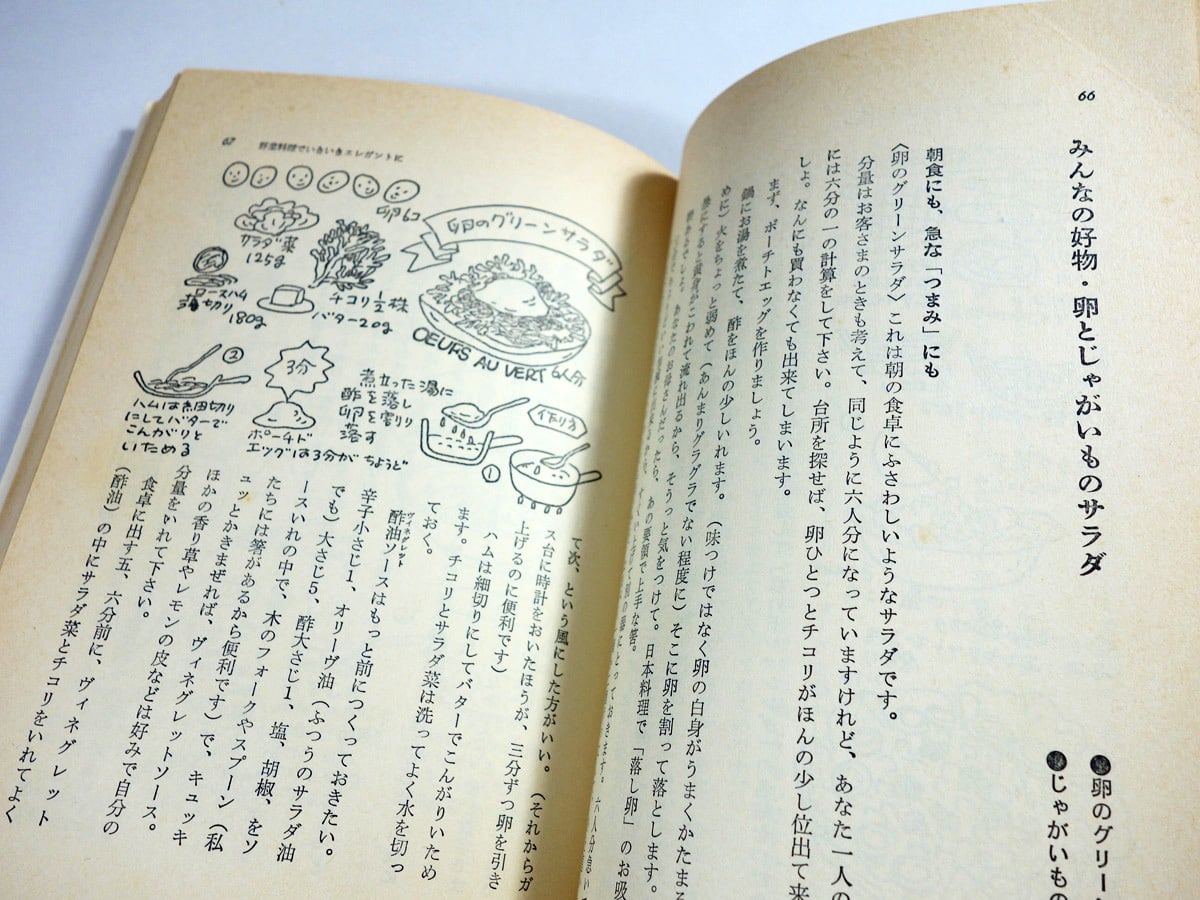 66
みんなの好物・卵とじゃがいものサラダ
●卵のグリー
●じゃがいもの
朝食にも、急な「つまみ」にも
〈卵のグリーンサラダ〉これは朝の食卓にふさわしいようなサラダです。
分量はお客さまのときも考えて、同じように六人分になっていますけれど、あなた一人の
には六分の一の計算をして下さい。台所を探せば、卵ひとつとチコリがほんの少し位出て来
しょ。なんにも買わなくても出来てしまいます。
まず、ポーチトエッグを作りましょう。
鍋にお湯を煮たて、酢をほんの少しいれます。（味つけではなく卵の白身がうまくかたまる
めに）火をちょっと弱めて（あんまりグラグラでない程度に）そこに卵を割って落とします。
流れ出るから、そうっと気をつけて。日本料理で「落し卵」のお吸
あなたのお母さんだったら、あの要領で上手な筈。
67
野菜料理でいきいきエレガントに
卵6コ
サラダ菜
125g
チコリ½株
ロースハム
薄切り
180g
バター20g
卵のグリーンサラダ
OEUFS AU VERT 6人分
作り方
①
煮立った湯に
酢を落し
卵を割り
落す
3分
ポーチド
エッグは3分がちょうど
②
ハムは糸田切り
にしてバターで
こんがりと
いためる
て次、という風にした方がいい。（それからガ
ス台に時計をおいたほうが、三分ずつ卵を引き
上げるのに便利です）
ハムは細切りにしてバターでこんがりいため
ます。チコリとサラダ菜は洗ってよく水を切っ
ておく。
酢油ソースはもっと前につくっておきたい。
ヴィネグレット
辛子小さじ1、オリーヴ油（ふつうのサラダ油
でも）大さじ5、酢大さじ1、塩、胡椒、をソ
ースいれの中で、木のフォークやスプーン（私
たちには箸があるから便利です）で、キュッキ
ュッとかきまぜれば、ヴィネグレットソース。
ほかの香り草やレモンの皮などは好みで自分の
分量をいれて下さい。
食卓に出す五、六分前に、ヴィネグレット
（酢油）の中にサラダ菜とチコリをいれてよく